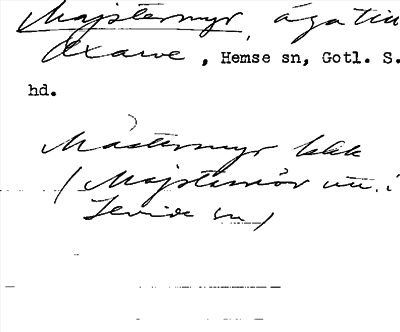 Majstermyr, äga till
Axarve, Hemse sn, Gotl. S.
hd.
Mästermyr kbk
(Majstermör utt. i
Levide sn)